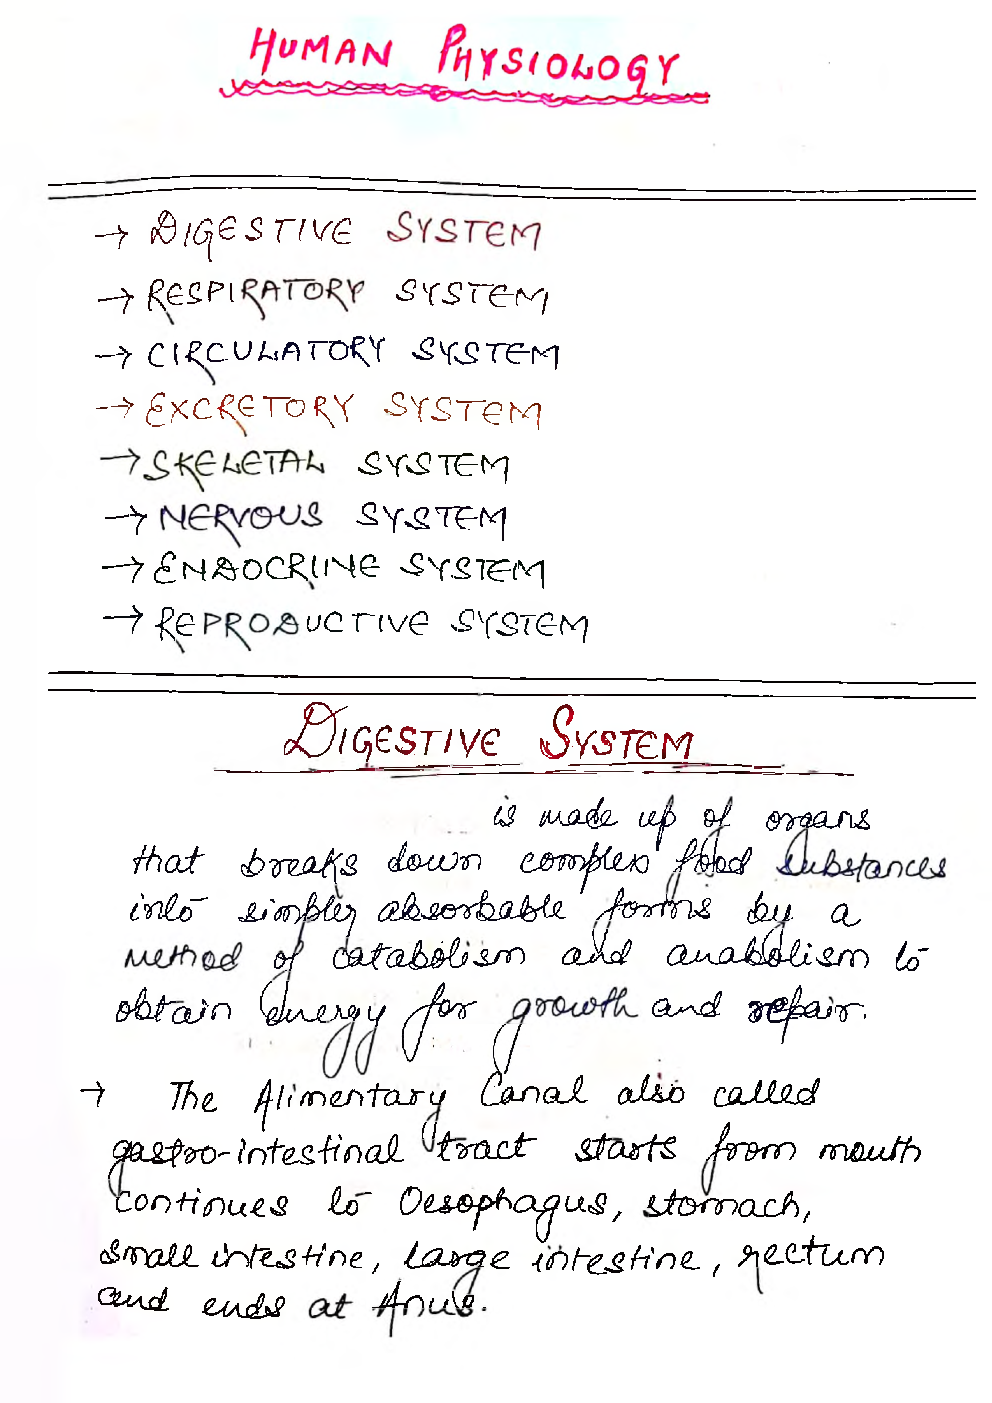 HUMAN PHYSIOLOGY
→ DIGESTIVE SYSTEM
→ RESPIRATORY SYSTEM
→ CIRCULATORY SYSTEM
→ EXCRETORY SYSTEM
→ SKELETAL SYSTEM
→ NERVOUS SYSTEM
→ ENDOCRINE SYSTEM
→ REPRODUCTIVE SYSTEM
DIGESTIVE SYSTEM
is made up of organs
that breaks down complex food substances
into simpler absorbable forms by a
method of catabolism and anabolism to
obtain energy for growth and repair.
→ The Alimentary Canal also called
gastro-intestinal tract starts from mouth
continues to Oesophagus, stomach,
small intestine, large intestine, rectum
and ends at Anus.